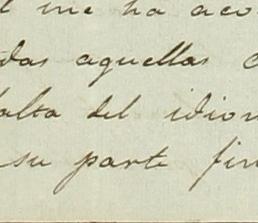 l me ha aco
das aquellas c
falta del idiom
su parte fin